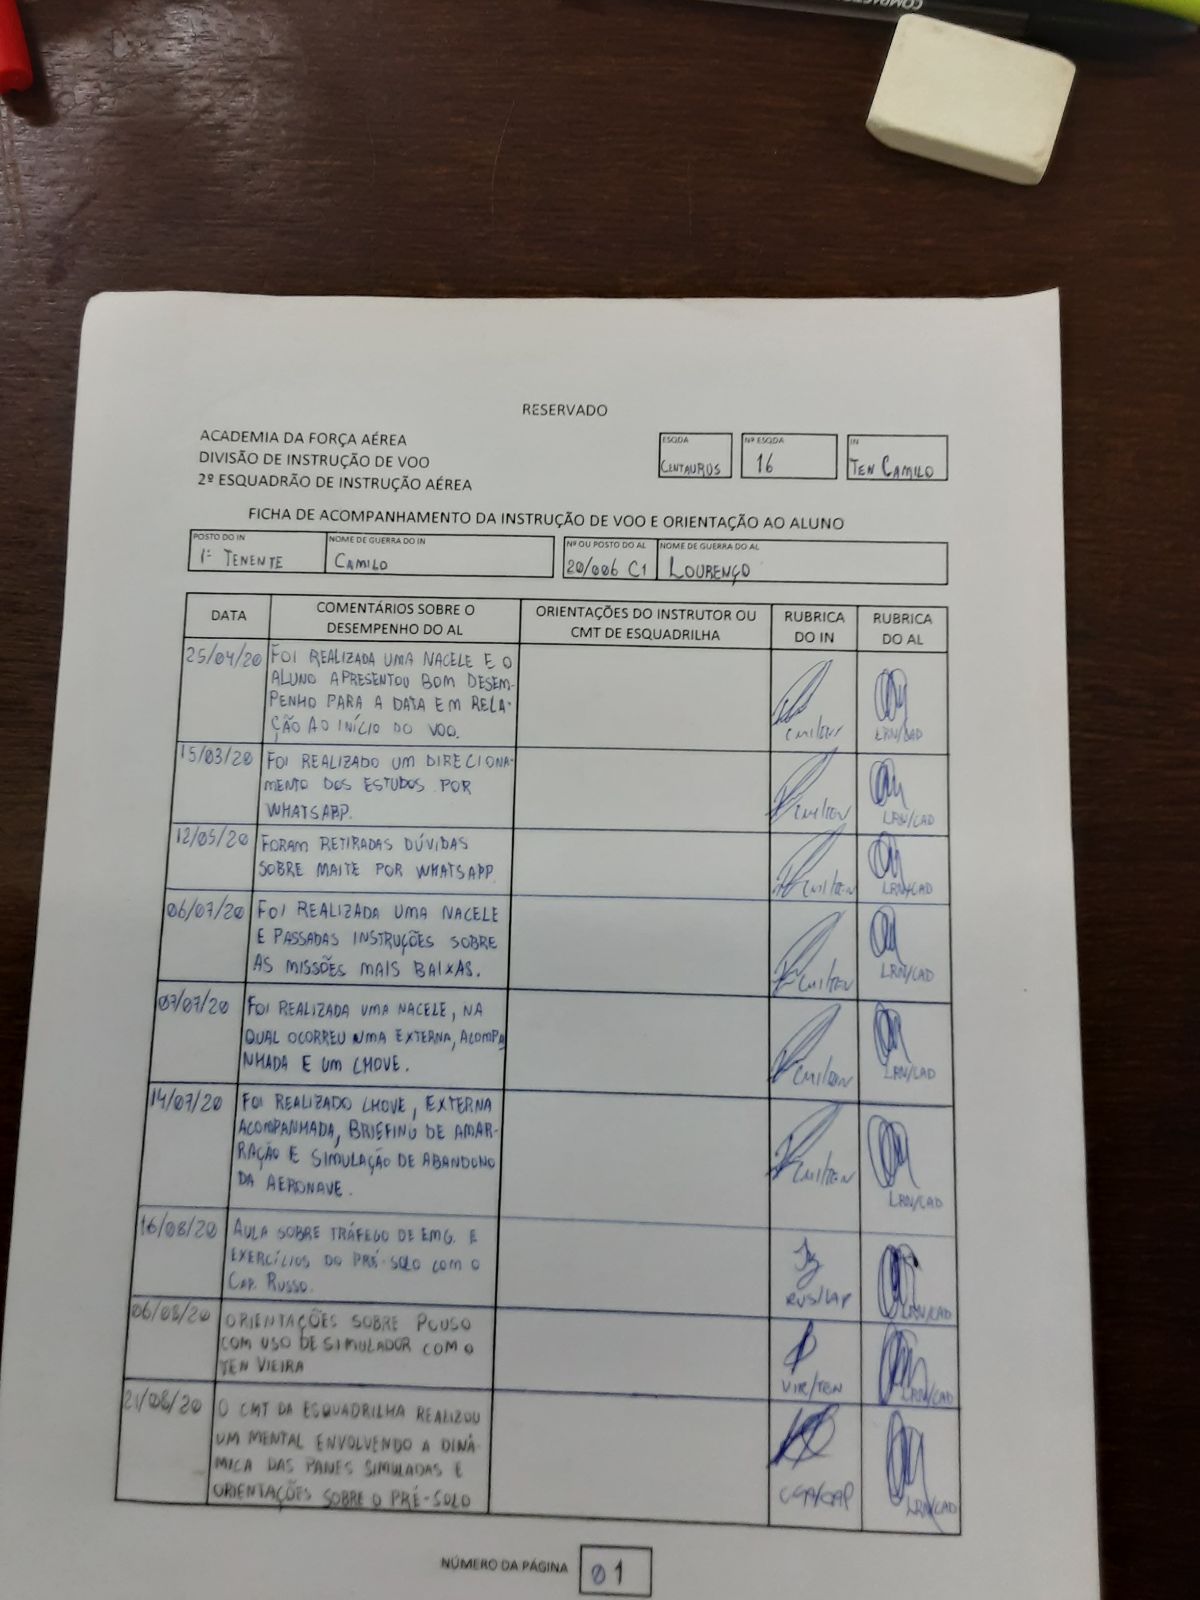 COMPACTOR
RESERVADO
ACADEMIA DA FORÇA AÉREA
DIVISÃO DE INSTRUÇÃO DE VOO
2º ESQUADRÃO DE INSTRUÇÃO AÉREA
ESQDA
CENTAURUS
Nº ESQDA
16
IN
TEN CAMILO
FICHA DE ACOMPANHAMENTO DA INSTRUÇÃO DE VOO E ORIENTAÇÃO AO ALUNO
POSTO DO IN
1º TENENTE
NOME DE GUERRA DO IN
CAMILO
Nº OU POSTO DO AL
20/006 C1
NOME DE GUERRA DO AL
LOURENÇO
DATA
COMENTÁRIOS SOBRE O
DESEMPENHO DO AL
ORIENTAÇÕES DO INSTRUTOR OU
CMT DE ESQUADRILHA
RUBRICA
DO IN
RUBRICA
DO AL
25/04/20
FOI REALIZADA UMA NACELE E O
ALUNO APRESENTOU BOM DESEM-
PENHO PARA A DATA EM RELA-
ÇÃO AO INÍCIO DO VOO.
CMI/TEN
LRN/CAD
15/03/20
FOI REALIZADO UM DIRECIONA-
MENTO DOS ESTUDOS POR
WHATSAPP.
CMI/TEN
LRN/CAD
12/05/20
FORAM RETIRADAS DÚVIDAS
SOBRE MAITE POR WHATSAPP.
CMI/TEN
LRN/CAD
06/07/20
FOI REALIZADA UMA NACELE
E PASSADAS INSTRUÇÕES SOBRE
AS MISSÕES MAIS BAIXAS.
CMI/TEN
LRN/CAD
07/07/20
FOI REALIZADA UMA NACELE, NA
QUAL OCORREU UMA EXTERNA, ACOMPA
NHADA E UM CHOVE.
CMI/TEN
LRN/CAD
14/07/20
FOI REALIZADO CHOVE, EXTERNA
ACOMPANHADA, BRIEFING DE AMAR-
RAÇÃO E SIMULAÇÃO DE ABANDONO
DA AERONAVE.
CMI/TEN
LRN/CAD
16/08/20
AULA SOBRE TRÁFEGO DE EMG. E
EXERCÍCIOS DO PRÉ-SOLO COM O
CAP. RUSSO.
RUS/CAP
LRN/CAD
06/08/20
ORIENTAÇÕES SOBRE POUSO
COM USO DE SIMULADOR COM O
TEN VIEIRA
VIR/TEN
LRN/CAD
21/08/20
O CMT DA ESQUADRILHA REALIZOU
UM MENTAL ENVOLVENDO A DINÂ-
MICA DAS PANES SIMULADAS E
ORIENTAÇÕES SOBRE O PRÉ-SOLO
LRN/CAD
NÚMERO DA PÁGINA
01